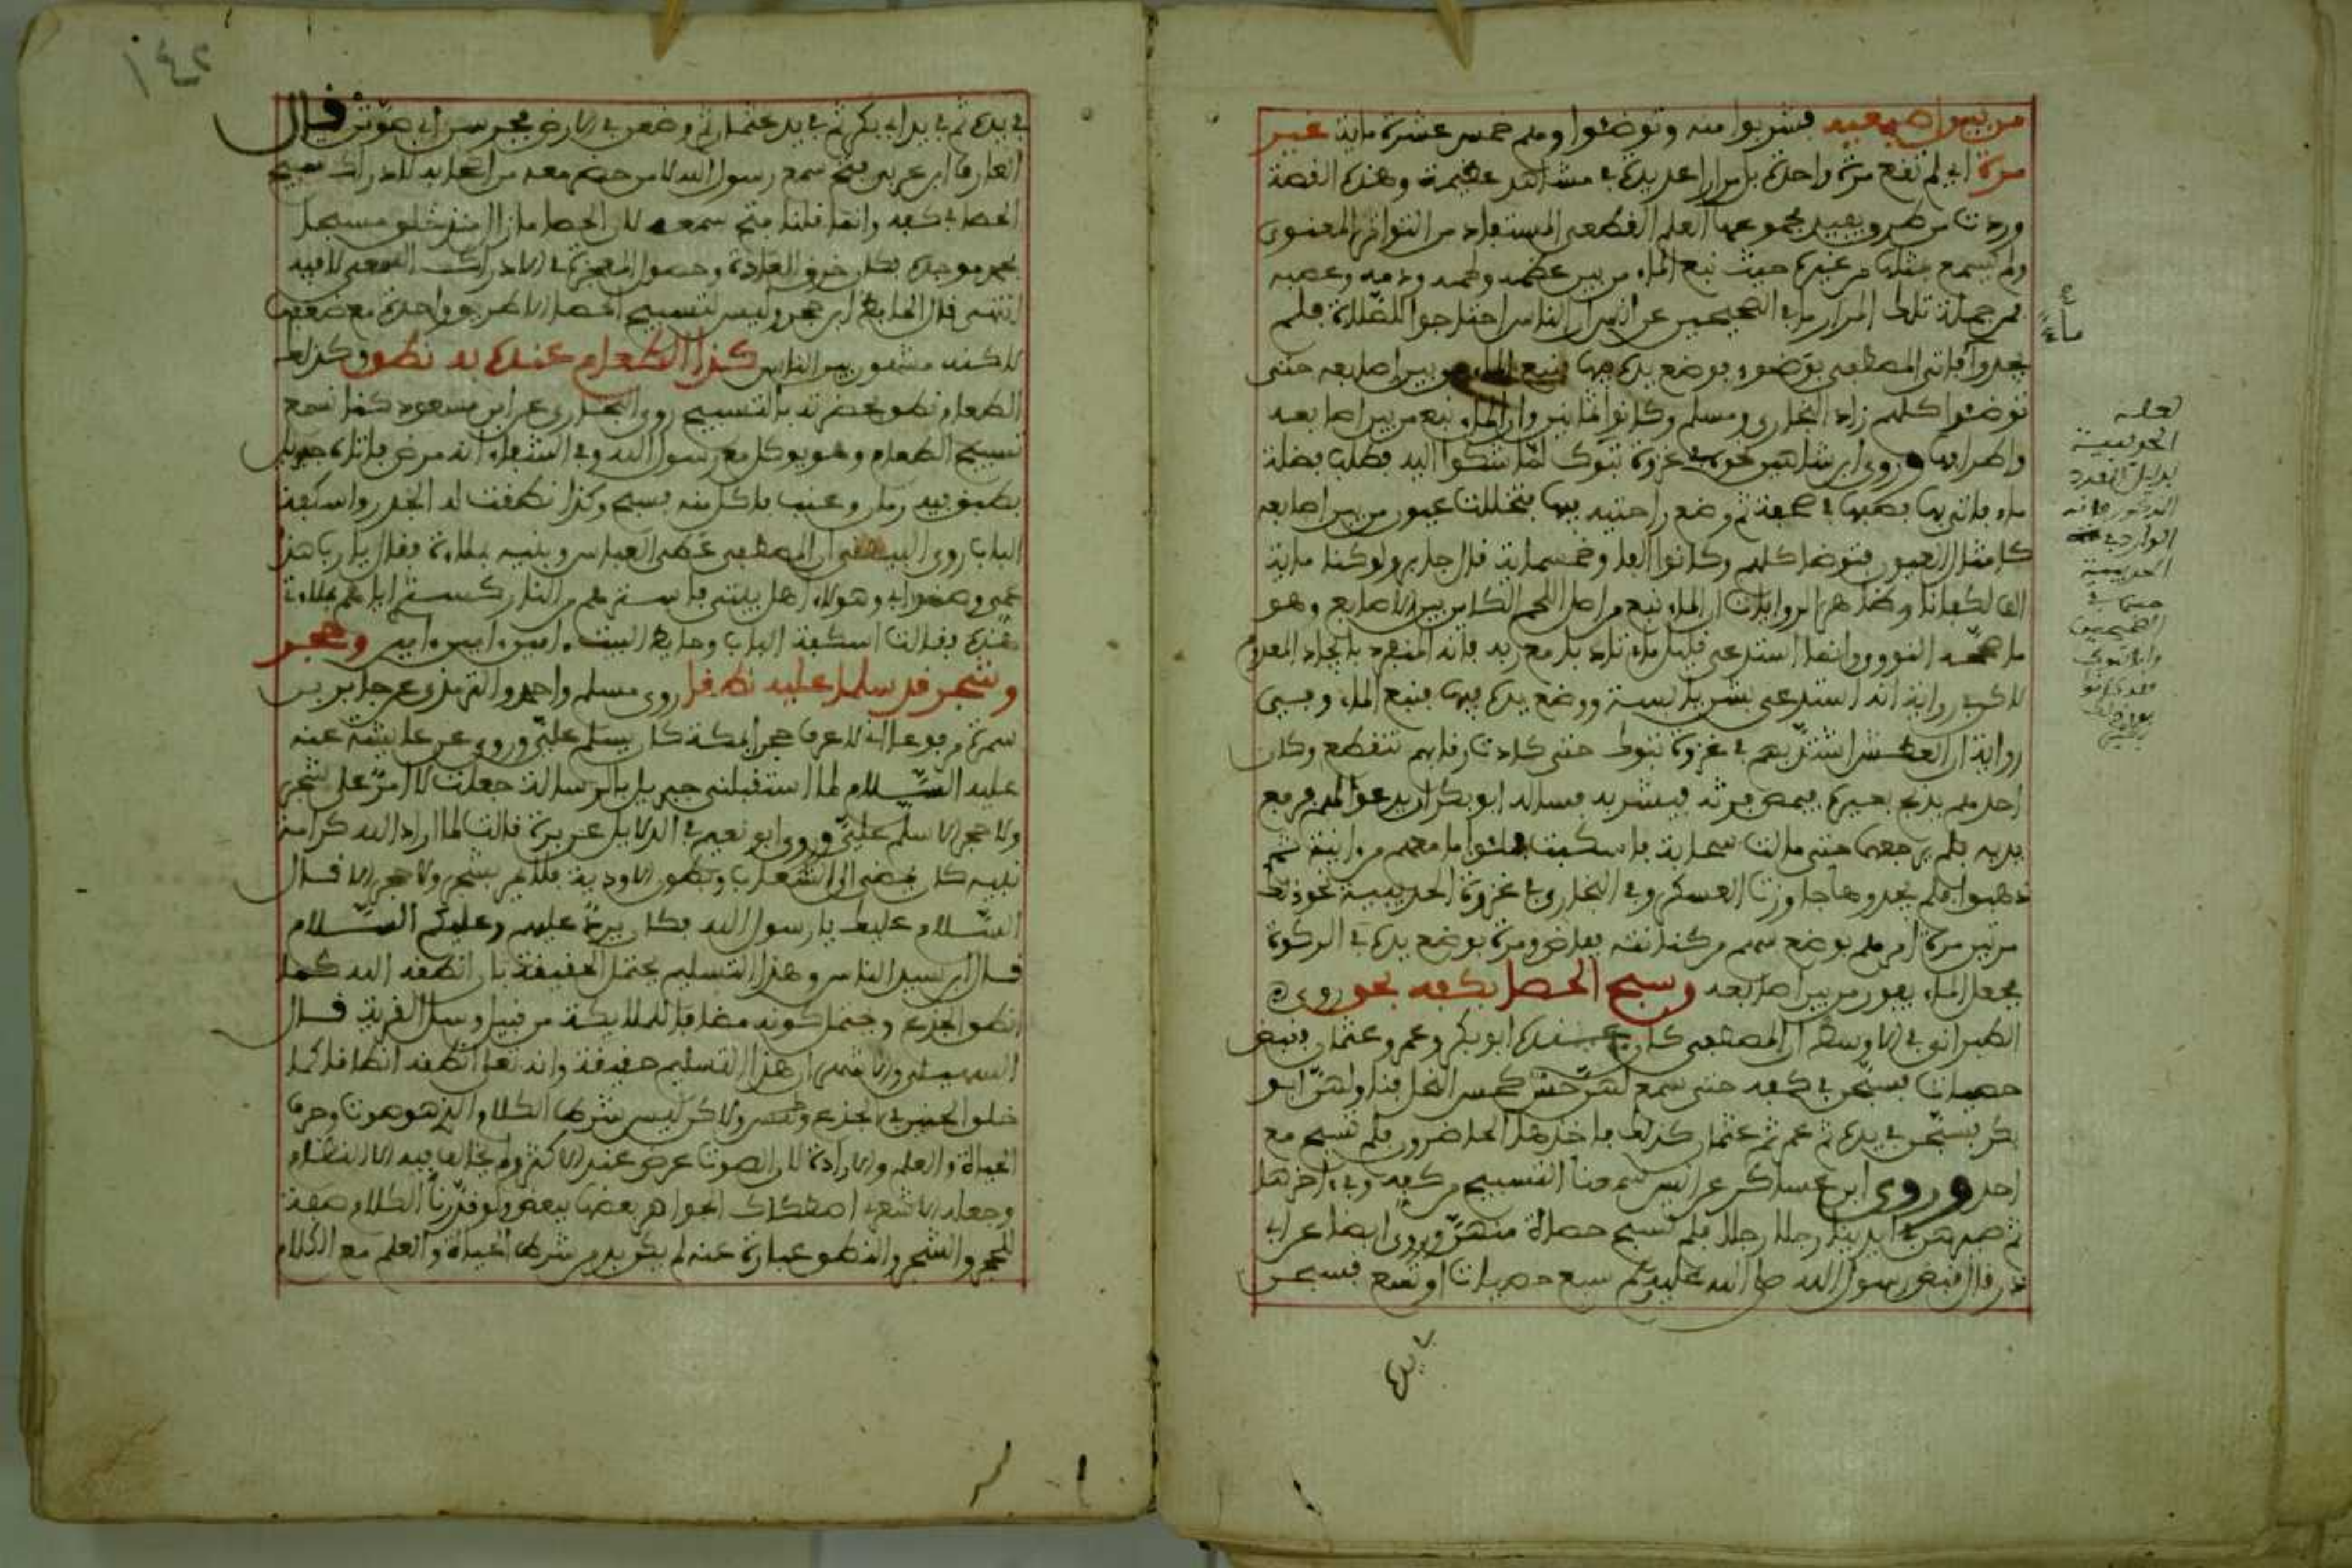 من بين اصبعيه فشربوا منه وتوضئوا وهم خمس عشرة ماية غير
مرة اي لم تقع مرة واحدة بل مرارا عديدة في مشاهد عظيمة وهذه القصة
وردت من طرق يفيد مجموعها العلم القطعي المستفاد من التواتر المعنوي
ولم يسمع بمثلها من غيره حيث نبع الماء من بين عظمه ولحمه ودمه وعصبه
فمن جملة تلك المرار ما في الصحيحين عن انس ان الناس احتاجوا للصلاة فلم
يجدوا فاتي المصطفى بوضوء فوضع يده فيها فنبع الماء من بين اصابعه حتى
توضئوا كلهم زاد البخاري ومسلم وكانوا ثمانين وان الماء نبع من بين اصابعه
واطرافها وروى ابن شاهين نحوه في غزوة تبوك لما شكوا اليه فطلب فضلة
ماء فاتي بها فصبها في صحفة ثم وضع راحتيه فيها فتخللت عيون من بين اصابعه
كامثال العيون فتوضا كلهم وكانوا الفا وخمسماية قال جابر ولو كنا ماية
الف لكفانا وظاهر الروايات ان الماء نبع من اصل اللحم الكاين بين الاصابع وهو
ما صححه النووي وانما استدعى قليل ماء تادبا مع ربه فانه المنفرد بايجاد المعدوم
لاكن في رواية انه استدعى بشن يابسة ووضع يده فيها فنبع الماء وفي
رواية ان العطش اشتد بهم في غزوة تبوك حتى كادت رقابهم تنقطع وكان
احدهم يذبح بعيره فيعصر فرثه فيشربه فساله ابو بكر ان يدعو لهم فرفع
يديه فلم يرجعهما حتى مالت سحابة فاسكبت فملئوا ما معهم من انية ثم
ذهبوا فلم يجدوها جاوزت العسكر وفي البخاري في غزوة الحديبية نحو ذلك
مرتين مرة امرهم بوضع سهم من كنانته ففاض ومرة بوضع يده في الركوة
فجعل الماء يفور من بين اصابعه وسبح الحصا بكفه بحق روى
الطبراني في الاوسط ان المصطفى كان عنده ابو بكر وعمر وعثمان فقبض
حصيات فسبحن في كفه حتى سمع لهن حس كحس النحل فناولهن ابو
بكر فسبحن في يده ثم عمر ثم عثمان كذلك فاخذها الحاضرون فلم تسبح مع
احد وروى ابن عساكر عن انس فسمعنا التسبيح من كفه وفي اخرها
ثم صيرهن في ايدينا رجلا رجلا فلم تسبح حصاة منهن وروى ايضا عن ابي
ذر قال قبض رسول الله صلى الله عليه وسلم سبع حصيات او تسع فسبحن
في يده
ماء
لعله
الحديبية
بدليل العدد
المذكور فانه
الوارد في
الحديبية
كما في
الصحيحين
في يده ثم في يد ابي بكر ثم في يد عثمان ثم وضعهن في الارض فخرسن اي صوتن قال
العارف ابن عربي فتح سمع رسول الله لا من حضر معه من اصحابه لادراك تسبيح
الحصا في كفه وانما قلنا فتح سمعه لان الحصا ما زال منذ خلق مسبحا
بحمد موجده فكان خرق العادة وحصول المعجزة في الادراك السمعي لا فيه
انتهى قال الحافظ ابن حجر وليس لتسبيح الحصا الا طريق واحدة مع ضعفها
لاكنه مشهور بين الناس كذا الطعام عنده به نطق وكذلك
الطعام نطق بحضرته بالتسبيح روى البخاري عن ابن مسعود كنا نسمع
تسبيح الطعام وهو يوكل مع رسول الله وفي الشفاء انه مرض فاتاه جبريل
بطبق فيه رمان وعنب فاكل منه فسبح وكذا نطقت له الجدر واسكفة
الباب روى البيهقي ان المصطفى غطى العباس وبنيه بملاءة فقال يا رب هذا
عمي وصنو ابي وهولاء اهل بيتي فاسترهم من النار كستري اياهم بملاءتي
هذه فقالت اسكفة الباب وحايط البيت امين امين امين وحجر
وشجر قد سلما عليه نطقا روى مسلم واحمد والترمذي عن جابر بن
سمرة مرفوعا اني لاعرف حجرا بمكة كان يسلم علي وروي عن عايشة عنه
عليه السلام لما استقبلني جبريل بالرسالة جعلت لا امر على شجر
ولا حجر الا سلم علي وروى ابو نعيم في الدلايل عن برة قالت لما اراد الله كرامة
نبيه كان يمضي الى الشعاب وبطون الاودية فلا يمر بشجر ولا حجر الا قال
السلام عليك يا رسول الله فكان يرد عليهم وعليكم السلام
قال ابن سيد الناس وهذا التسليم يحتمل الحقيقة بان انطقه الله كما
انطق الجذع ويحتمل كونه مضافا للملايكة من قبيل وسل القرية قال
السهيلي والاشهر ان هذا التسليم حقيقة وانه تعالى انطقه انطاقا كما
خلق الحنين في الجذع ولاكن ليس شرط الكلام الذي هو صوت وحرف
الحياة والعلم والارادة لان الصوت عرض عند الاكثر ولم يخالف فيه الا النظام
وجعله الاشعري اصطكاك الجواهر بعضها ببعض ولو قدرنا الكلام صفة
للحجر والشجر والنطق عبارة عنه لم يكن بد من شرط الحياة والعلم مع الكلام
١٤٢